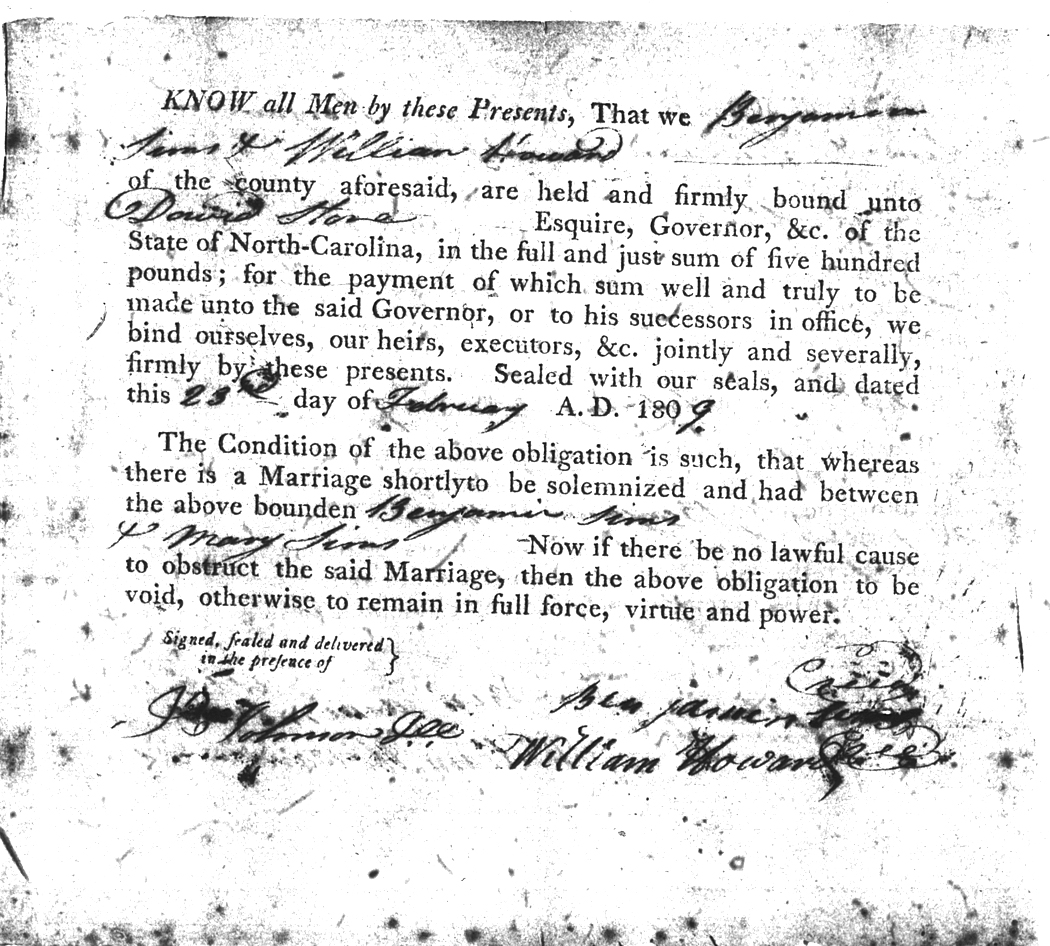 KNOW all Men by these Presents, That we Benjamin
Sims & William Howard
of the county aforesaid, are held and firmly bound unto
David Stone Esquire, Governor, &c. of the
State of North-Carolina, in the full and just sum of five hundred
pounds; for the payment of which sum well and truly to be
made unto the said Governor, or to his successors in office, we
bind ourselves, our heirs, executors, &c. jointly and severally,
firmly by these presents. Sealed with our seals, and dated
this 23 day of February A. D. 1809.
The Condition of the above obligation is such, that whereas
there is a Marriage shortlyto be solemnized and had between
the above bounden Benjamin Sims
& Mary Sims Now if there be no lawful cause
to obstruct the said Marriage, then the above obligation to be
void, otherwise to remain in full force, virtue and power.
Signed, ſealed and delivered
in the preſence of
Benjamin Sims
Solomon
William Howard